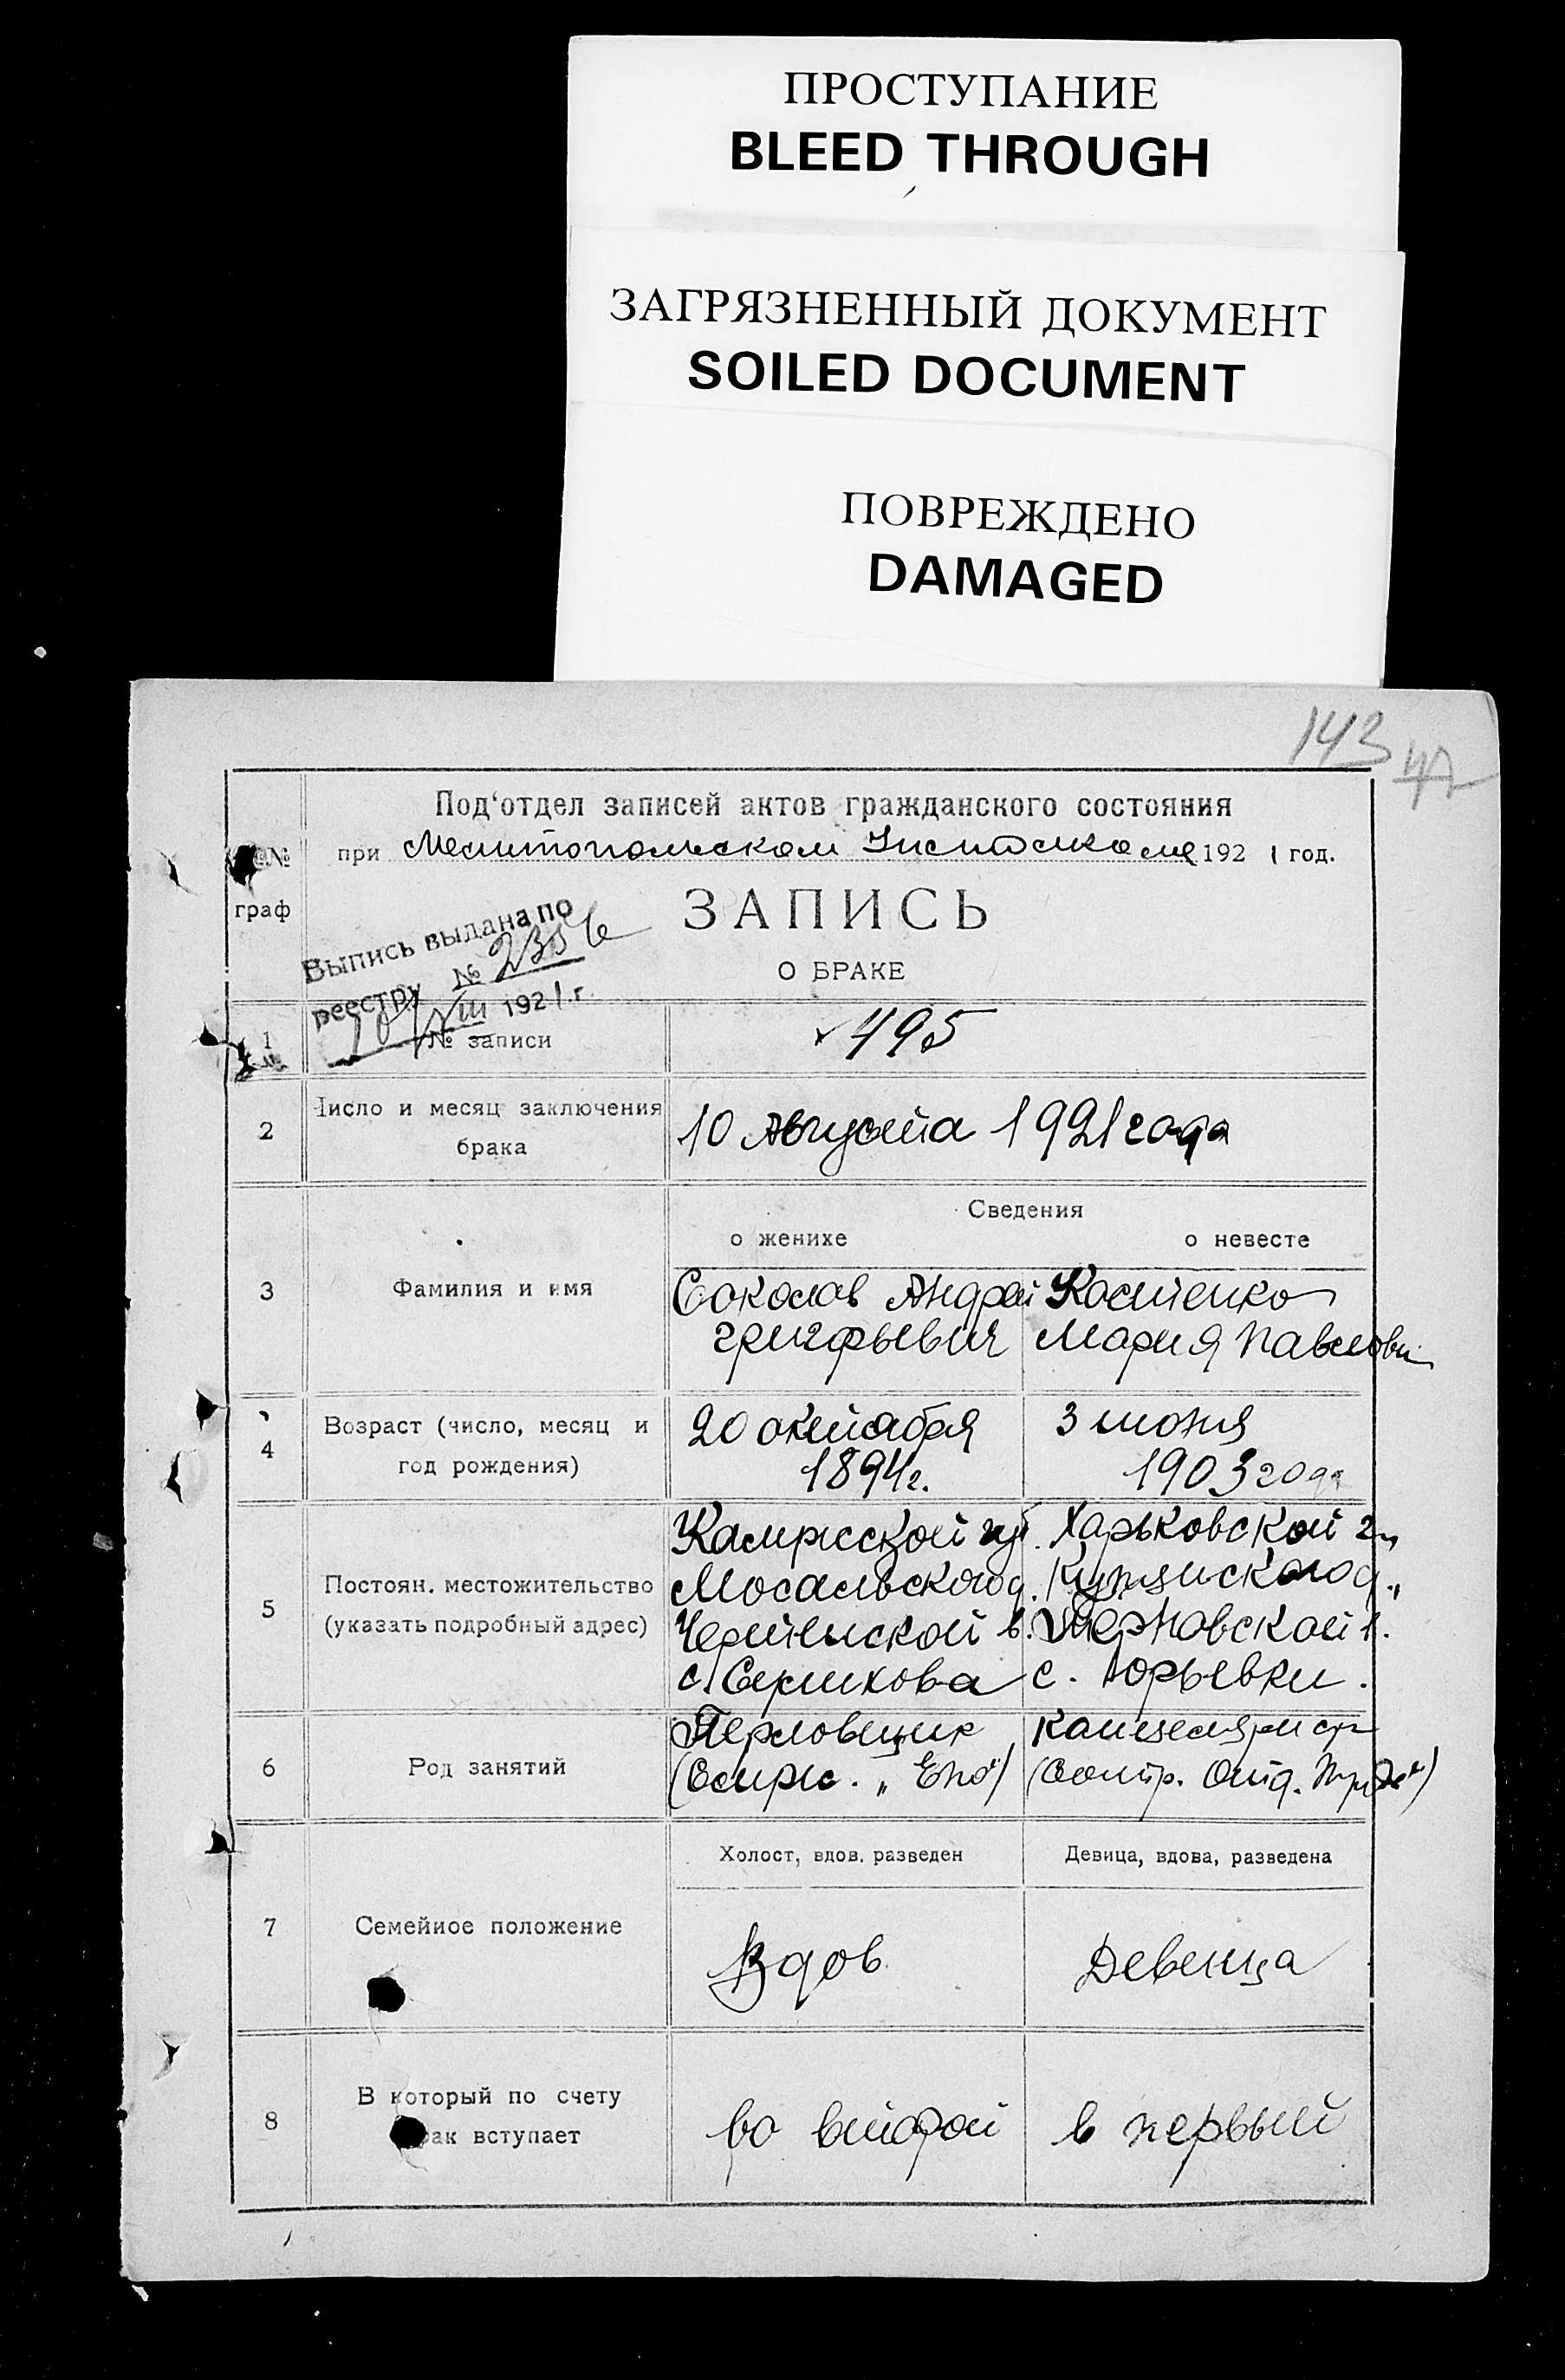 ПРОСТУПАНИЕ
BLEED THROUGH
ЗАГРЯЗНЕННЫЙ ДОКУМЕНТ
SOILED DOCUMENT
ПОВРЕЖДЕНО
DAMAGED
143
47
Под'отдел записей актов гражданского состояния
№
граф
при Мелитопольском 1921 год.
ЗАПИСЬ
О БРАКЕ
Выпись выдана по
реестру №
1921 г.
1 № записи 495
2 Число и месяц заключения брака
10 Августа 1921 года
Сведения
о женихе о невесте
3 Фамилия и имя
Соколов Андрей
григорьевич
Костенко
Мария павловн
4 Возраст (число, месяц и
год рождения)
20 октября
1894 г.
3 июня
1903 года
5 Постоян. местожительство
(указать подробный адрес)
Калужской губ.
Мосальского у.
в.
с.
Харьковской г
Купянского у.,
в.
с. Юрьевки.
6 Род занятий
канцелярист
7 Семейное положение
Холост, вдов, разведен
Девица, вдова, разведена
Вдов
Девица
8 В который по счету
брак вступает
во второй
в первый